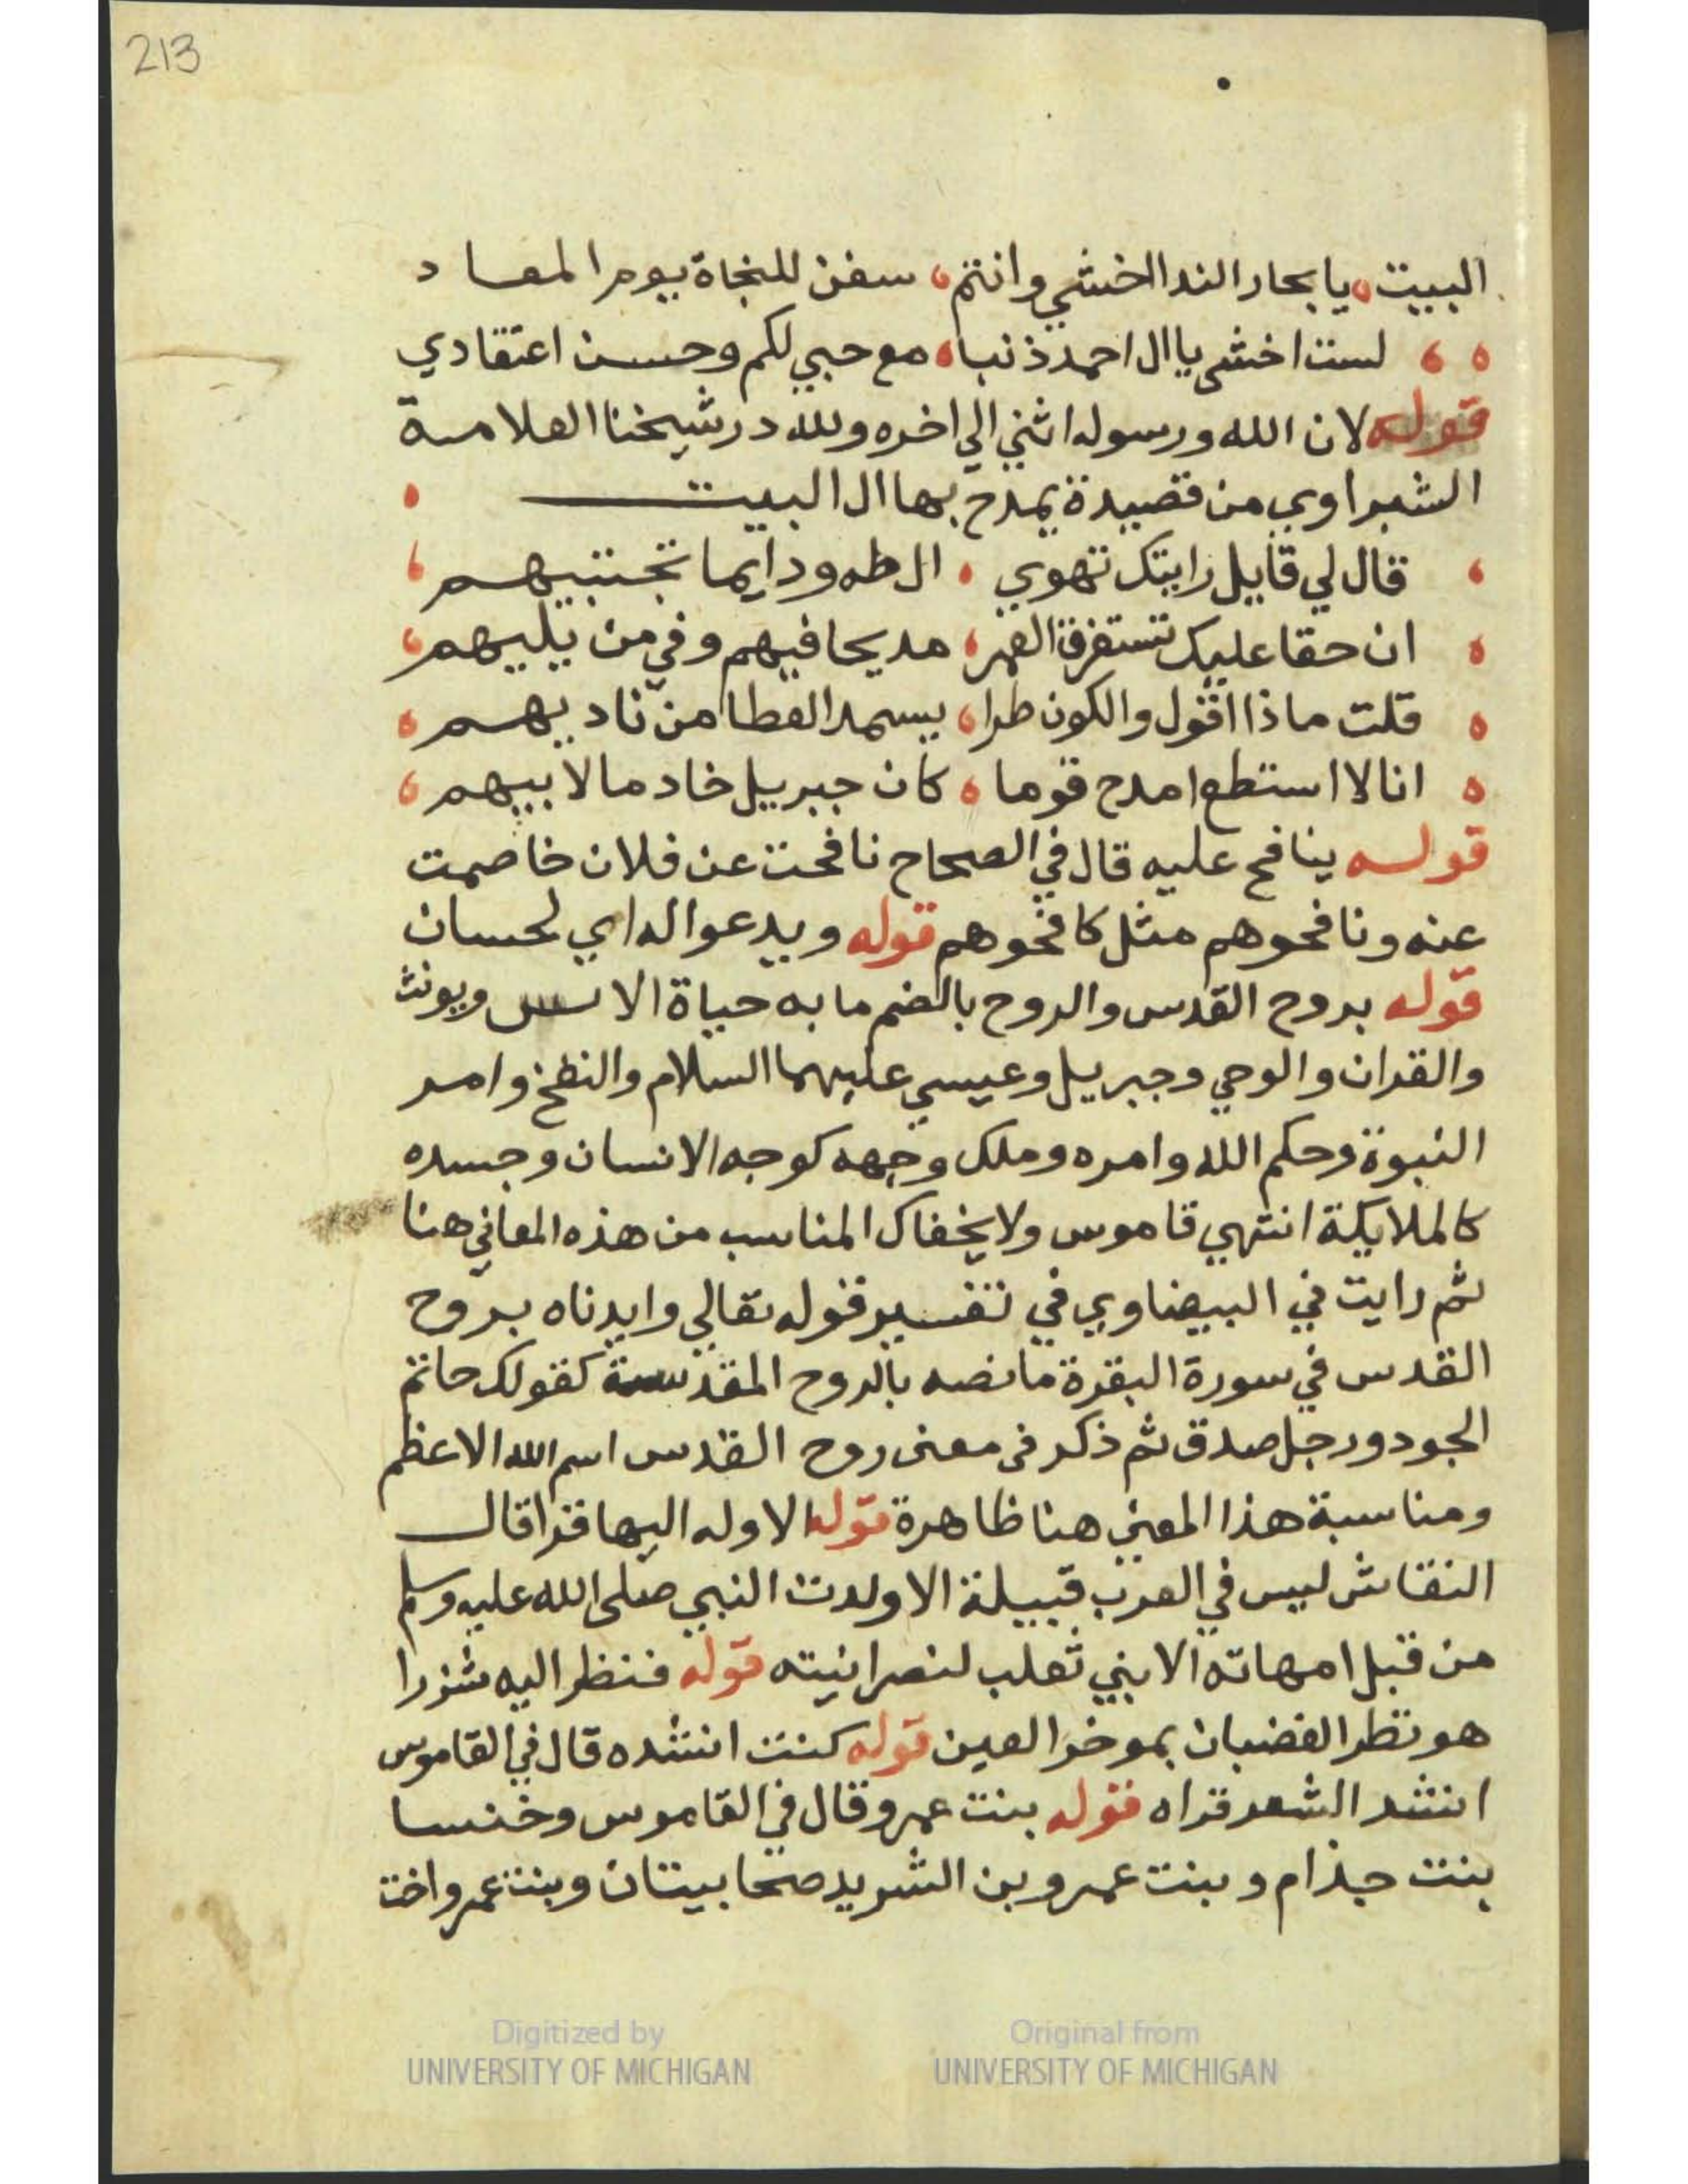 213
البيت، يا بحار الندا اخشي وانتم، سفن للنجاة يوم المعاد
، ، لست اخشى يا ال احمد ذنبا، مع حبي لكم وحسن اعتقادي
قوله لان الله ورسوله اثني الي اخره ولله در شيخنا العلامة
الشبراوي من قصيدة يمدح بها ال البيت ،
، قال لي قايل رايتك تهوي ، ال طه ودايما تجتنبهم ،
، ان حقا عليك تستغرق العمر، مديحا فيهم وفي من يليهم،
، قلت ماذا اقول والكون طرا، يستمد العطا من ناديهم ،
، انا لا استطع امدح قوما ، كان جبريل خادما لابيهم ،
قوله ينافح عليه قال في الصحاح نافحت عن فلان خاصمت
عنه ونافحوهم مثل كافحوهم قوله ويدعوا له اي لحسان
قوله بروح القدس والروح بالضم ما به حياة الانفس ويونث
والقران والوحي وجبريل وعيسي عليهما السلام والنفخ وامر
النبوة وحكم الله وامره وملك وجهه كوجه الانسان وجسده
كالملايكة انتهي قاموس ولا يخفاك المناسب من هذه المعاني هنا
ثم رايت في البيضاوي في تفسير قوله تعالي وايدناه بروح
القدس في سورة البقرة ما نصه بالروح المقدسة كقولك حاتم
الجود ورجل صدق ثم ذكر في معنى روح القدس اسم الله الاعظم
ومناسبة هذا المعني هنا ظاهرة قوله الا وله اليها قرا قال
النقاش ليس في العرب قبيلة الا ولدت النبي صلى الله عليه وسلم
من قبل امهاته الا بني ثعلب لنصرانيته قوله فنظر اليه شزرا
هو نظر الغضبان بموخر العين قوله كنت انشده قال في القاموس
انشد الشعر قراه قوله بنت عمرو قال في القاموس وخنسا
بنت جذام وبنت عمرو بن الشريد صحابيتان وبنت عمرو اخت
Digitized by
UNIVERSITY OF MICHIGAN
Original from
UNIVERSITY OF MICHIGAN